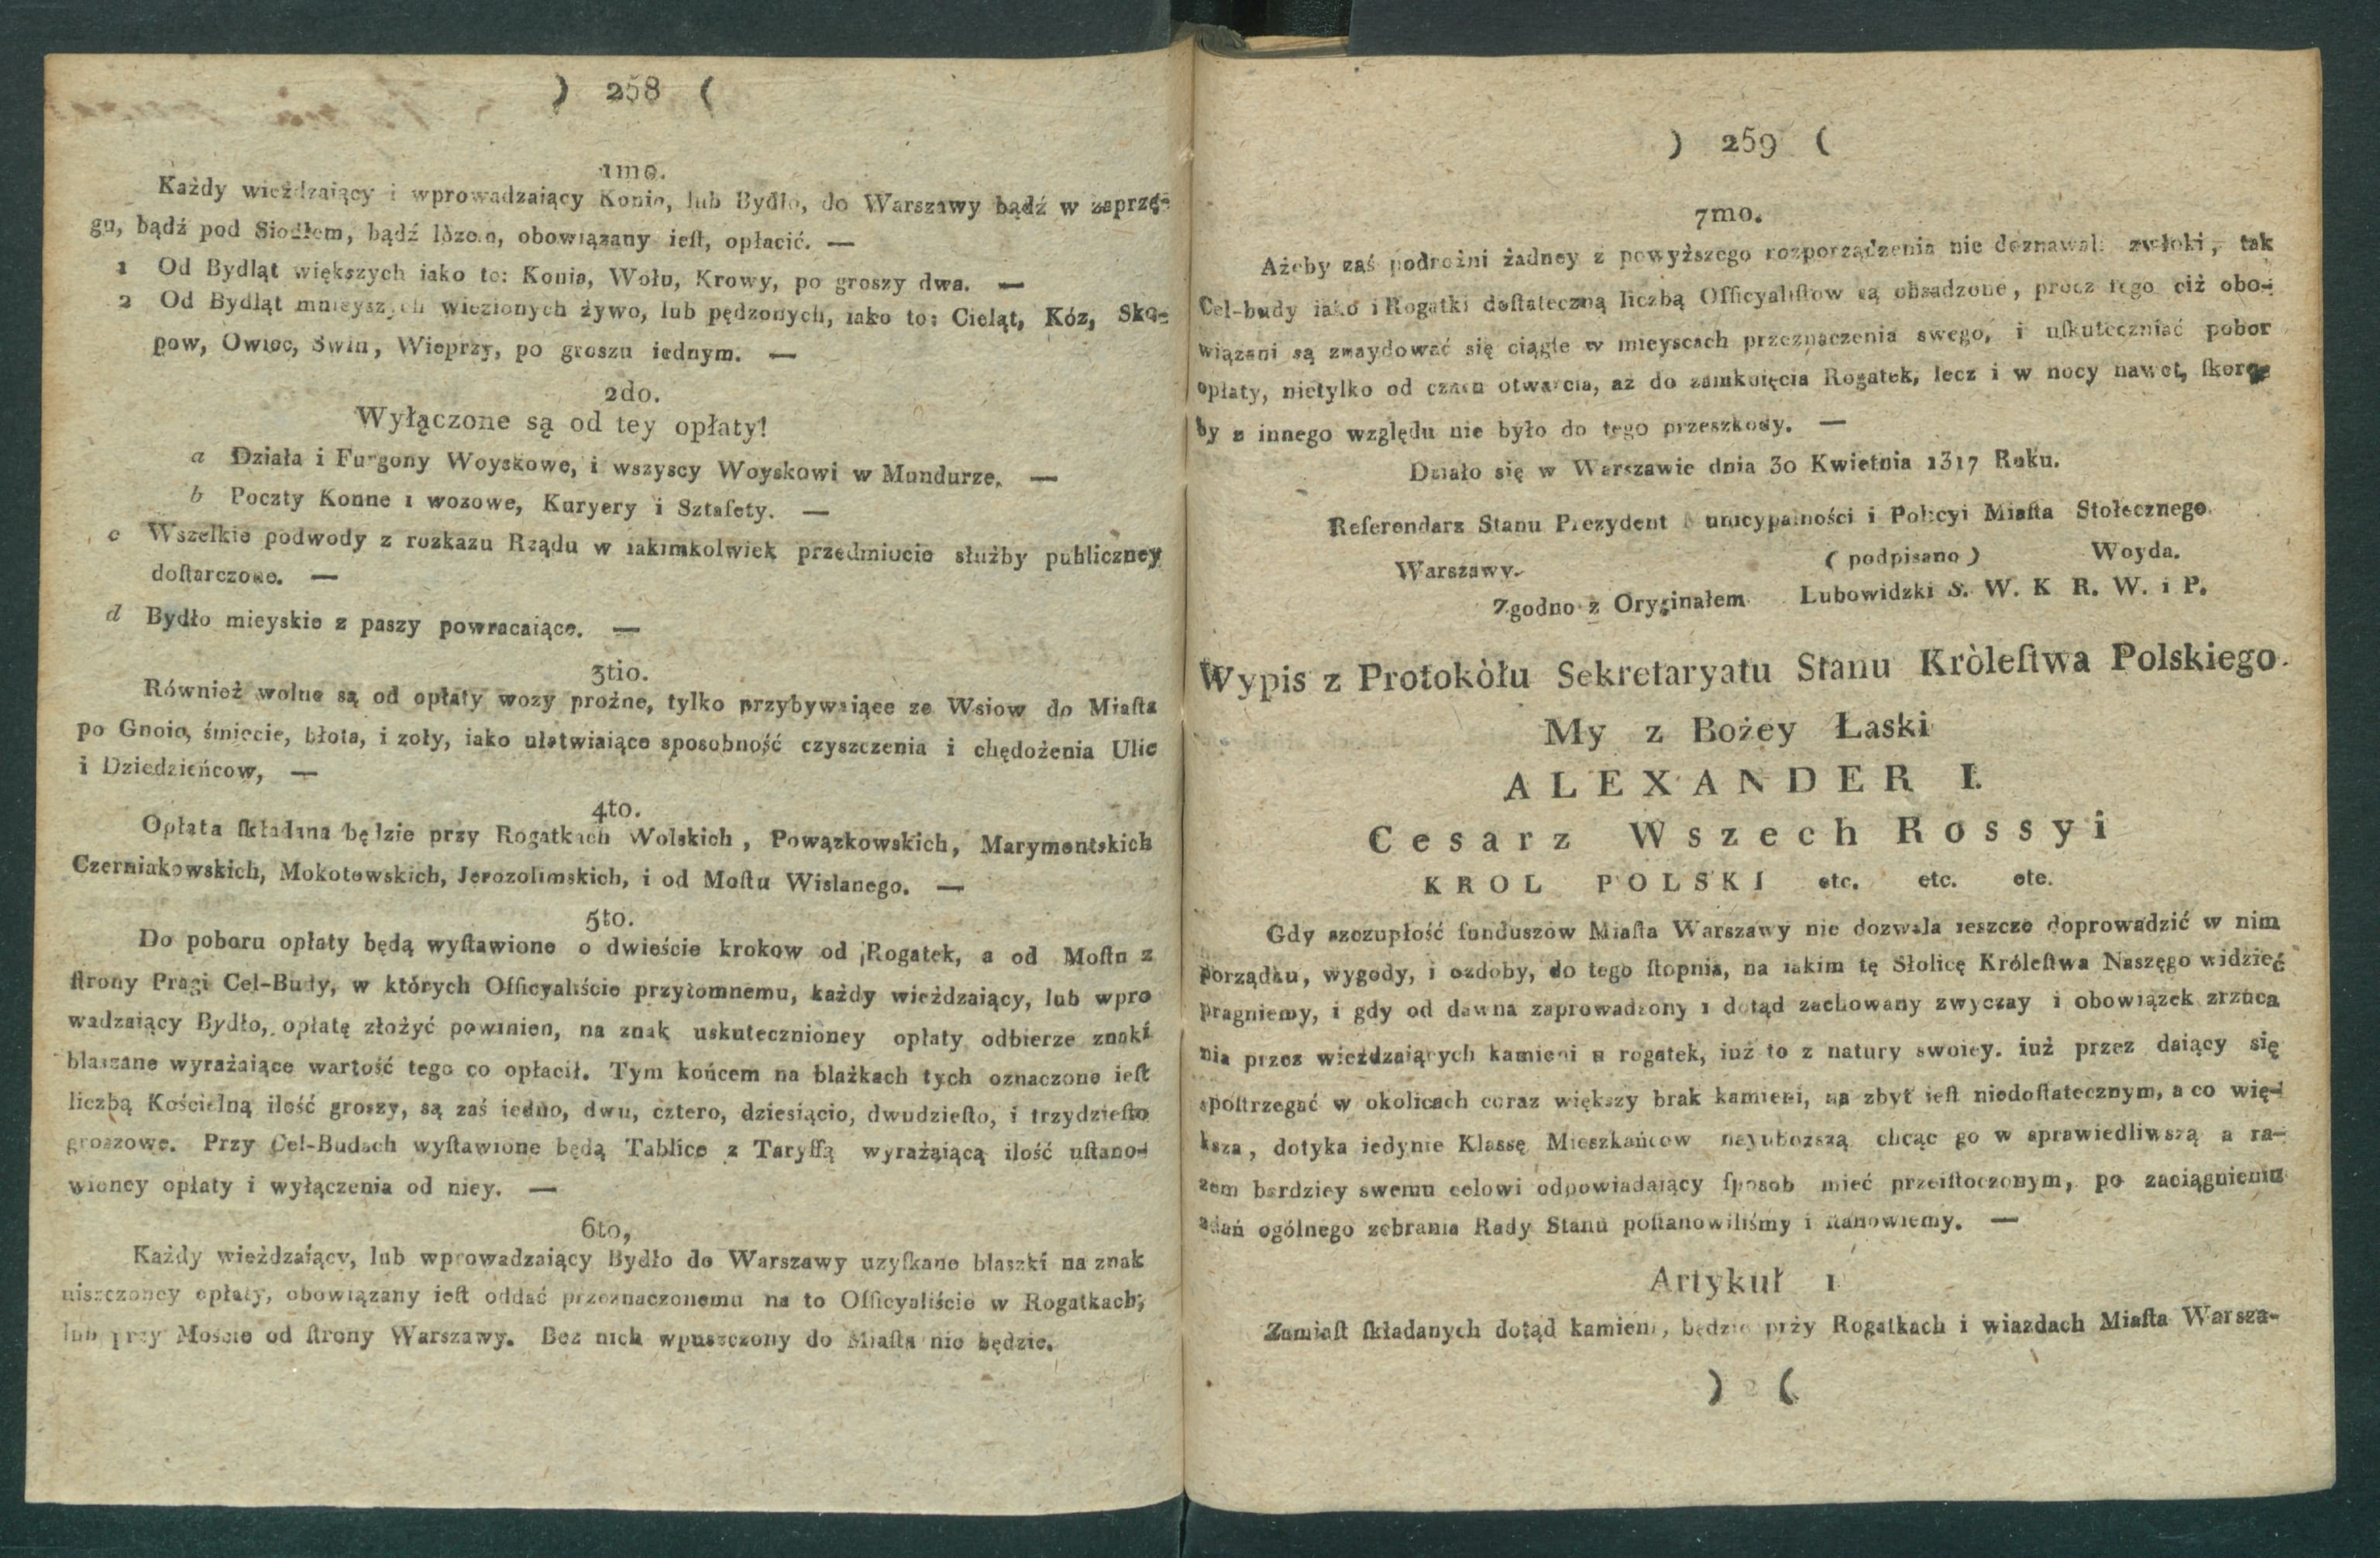 ) 258 (
1mo.
Każdy wieżdzaiący i wprowadzaiący Konie, lub Bydło, do Warszawy bądź w zaprzę-
gu, bądź pod Siodłem, bądź lòzem, obowiązany ieſt, opłacić. —
1 Od Bydląt większych iako to: Konia, Wołu, Krowy, po groszy dwa. —
2 Od Bydląt mnieyszych wiezionych żywo, lub pędzonych, iako to: Cieląt, Kóz, Sko-
pow, Owiec, Swin, Wieprzy, po groszu iednym. —
2do.
Wyłączone są od tey opłaty!
a Działa i Furgony Woyskowe, i wszyscy Woyskowi w Mundurze. —
b Poczty Konne i wozowe, Kuryery i Sztafety. —
c Wszelkie podwody z rozkazu Rządu w iakimkolwiek przedmiocie służby publiczney
doſtarczone. —
d Bydło mieyskie z paszy powracaiące. —
3tio.
Również wolne są od opłaty wozy prożne, tylko przybywaiące ze Wsiow do Miaſta
po Gnoie, śmiecie, błota, i zoły, iako ułatwiaiące sposobność czyszczenia i chędożenia Ulic
i Dziedzieńcow, —
4to.
Opłata ſkładana będzie przy Rogatkach Wolskich, Powązkowskich, Marymontskich
Czerniakowskich, Mokotowskich, Jerozolimskich, i od Moſtu Wislanego. —
5to.
Do poboru opłaty będą wyſtawione o dwieście krokow od Rogatek, a od Moſtu z
ſtrony Pragi Cel-Budy, w których Officyaliście przytomnemu, każdy wieżdzaiący, lub wpro
wadzaiący Bydło, opłatę złożyć powinien, na znak uskutecznioney opłaty odbierze znaki
blaszane wyrażaiące wartość tego co opłacił. Tym końcem na blażkach tych oznaczone ieſt
liczbą Kościelną ilość groszy, są zaś iedno, dwu, cztero, dziesiącio, dwudzieſto, i trzydzieſto
groszowe. Przy Cel-Budach wyſtawione będą Tablice z Taryffą wyrażąiącą ilość uſtano-
wioney opłaty i wyłączenia od niey. —
6to,
Każdy wieżdzaiący, lub wprowadzaiący Bydło do Warszawy uzyſkane blaszki na znak
niszczoney opłaty, obowiązany ieſt oddać przeznaczonemu na to Officyaliście w Rogatkach;
lub przy Moście od ſtrony Warszawy. Bez nich wpuszczony do Miaſta nie będzie.
) 259 (
7mo.
Ażeby zaś podrożni żadney z powyższego rozporządzenia nie doznawali zwłoki, tak
Cel-budy iako i Rogatki doſtateczną liczbą Officyaliſtow są obsadzone, procz tego ciż obo-
wiązani są znaydować się ciągle w mieyscach przeznaczenia swego, i uſkuteczniać pobor
opłaty, nietylko od czasu otwarcia, aż do zamknięcia Rogatek, lecz i w nocy nawet, ſkoro
by z innego względu nie było do tego przeszkody. —
Działo się w Warszawie dnia 30 Kwietnia 1817 Roku.
Referendarz Stanu Prezydent Municypalności i Policyi Miaſta Stołecznego
Warszawy. (podpisano) Woyda.
Zgodno z Oryginałem Lubowidzki S. W. K R. W. i P.
Wypis z Protokòłu Sekretaryatu Stanu Kròleſtwa Polskiego.
My z Bożey Łaski
ALEXANDER I.
Cesarz Wszech Rossyi
KROL POLSKI etc. etc. etc.
Gdy szczupłość funduszow Miaſta Warszawy nie dozwala ieszcze doprowadzić w nim
porządku, wygody, i ozdoby, do tego ſtopnia, na iakim tę Słolicę Króleſtwa Naszęgo widzieć
pragniemy, i gdy od dawna zaprowadzony i dotąd zachowany zwyczay i obowiązek zrzuca
nia przez wieżdzaiących kamieni u rogatek, iuż to z natury swoiey. iuż przez daiący się
spoſtrzegać w okolicach coraz większy brak kamieni, na zbyt ieſt niedoſtatecznym, a co wię-
ksza, dotyka iedynie Klassę Mieszkańcow nayuboższą chcąc go w sprawiedliwszą a ra-
zem bardziey swemu celowi odpowiadaiący ſposob mieć przeiſtoczonym, po zaciągnieniu
zdań ogólnego zebrania Rady Stanu poſtanowiliśmy i ſtanowiemy. —
Artykuł 1
Zamiaſt ſkładanych dotąd kamieni, będzie przy Rogatkach i wiazdach Miaſta Warsza-
) 2 (